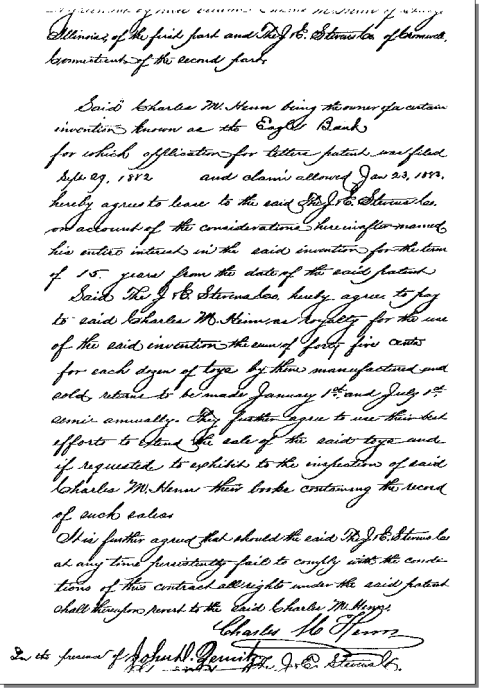 Agreement by and between Charles M. Henn of Chicago
Illinois, of the first part and The J & E. Stevens Co. of Cromwell,
Connecticut of the second part,
Said Charles M. Henn being the owner of a certain
invention known as the Eagle Bank
for which application for letters patent was filed
Sept 29, 1882 and claim allowed Jan 23, 1883,
hereby agrees to lease to the said The J & E. Stevens Co.
on account of the considerations hereinafter named
his entire interest in the said invention for the term
of 15 years from the date of the said patent
Said The J & E. Stevens Co. hereby agree to pay
to said Charles M. Henn, as royalty for the use
of the said invention the sum of forty five cents
for each dozen of toys by them manufactured and
sold returns to be made January 1st and July 1st
semi annually. They further agree to use their best
efforts to extend the sale of the said toys and
if requested to exhibit to the inspection of said
Charles M. Henn their books containing the record
of such sales
It is further agreed that should the said The J. & E. Stevens Co
at any time persistently fail to comply with the condi-
tions of this contract all rights under the said patent
shall thereupon revert to the said Charles M. Henn,
Charles M Henn
In the presence of John D.
The J. & E. Stevens Co.